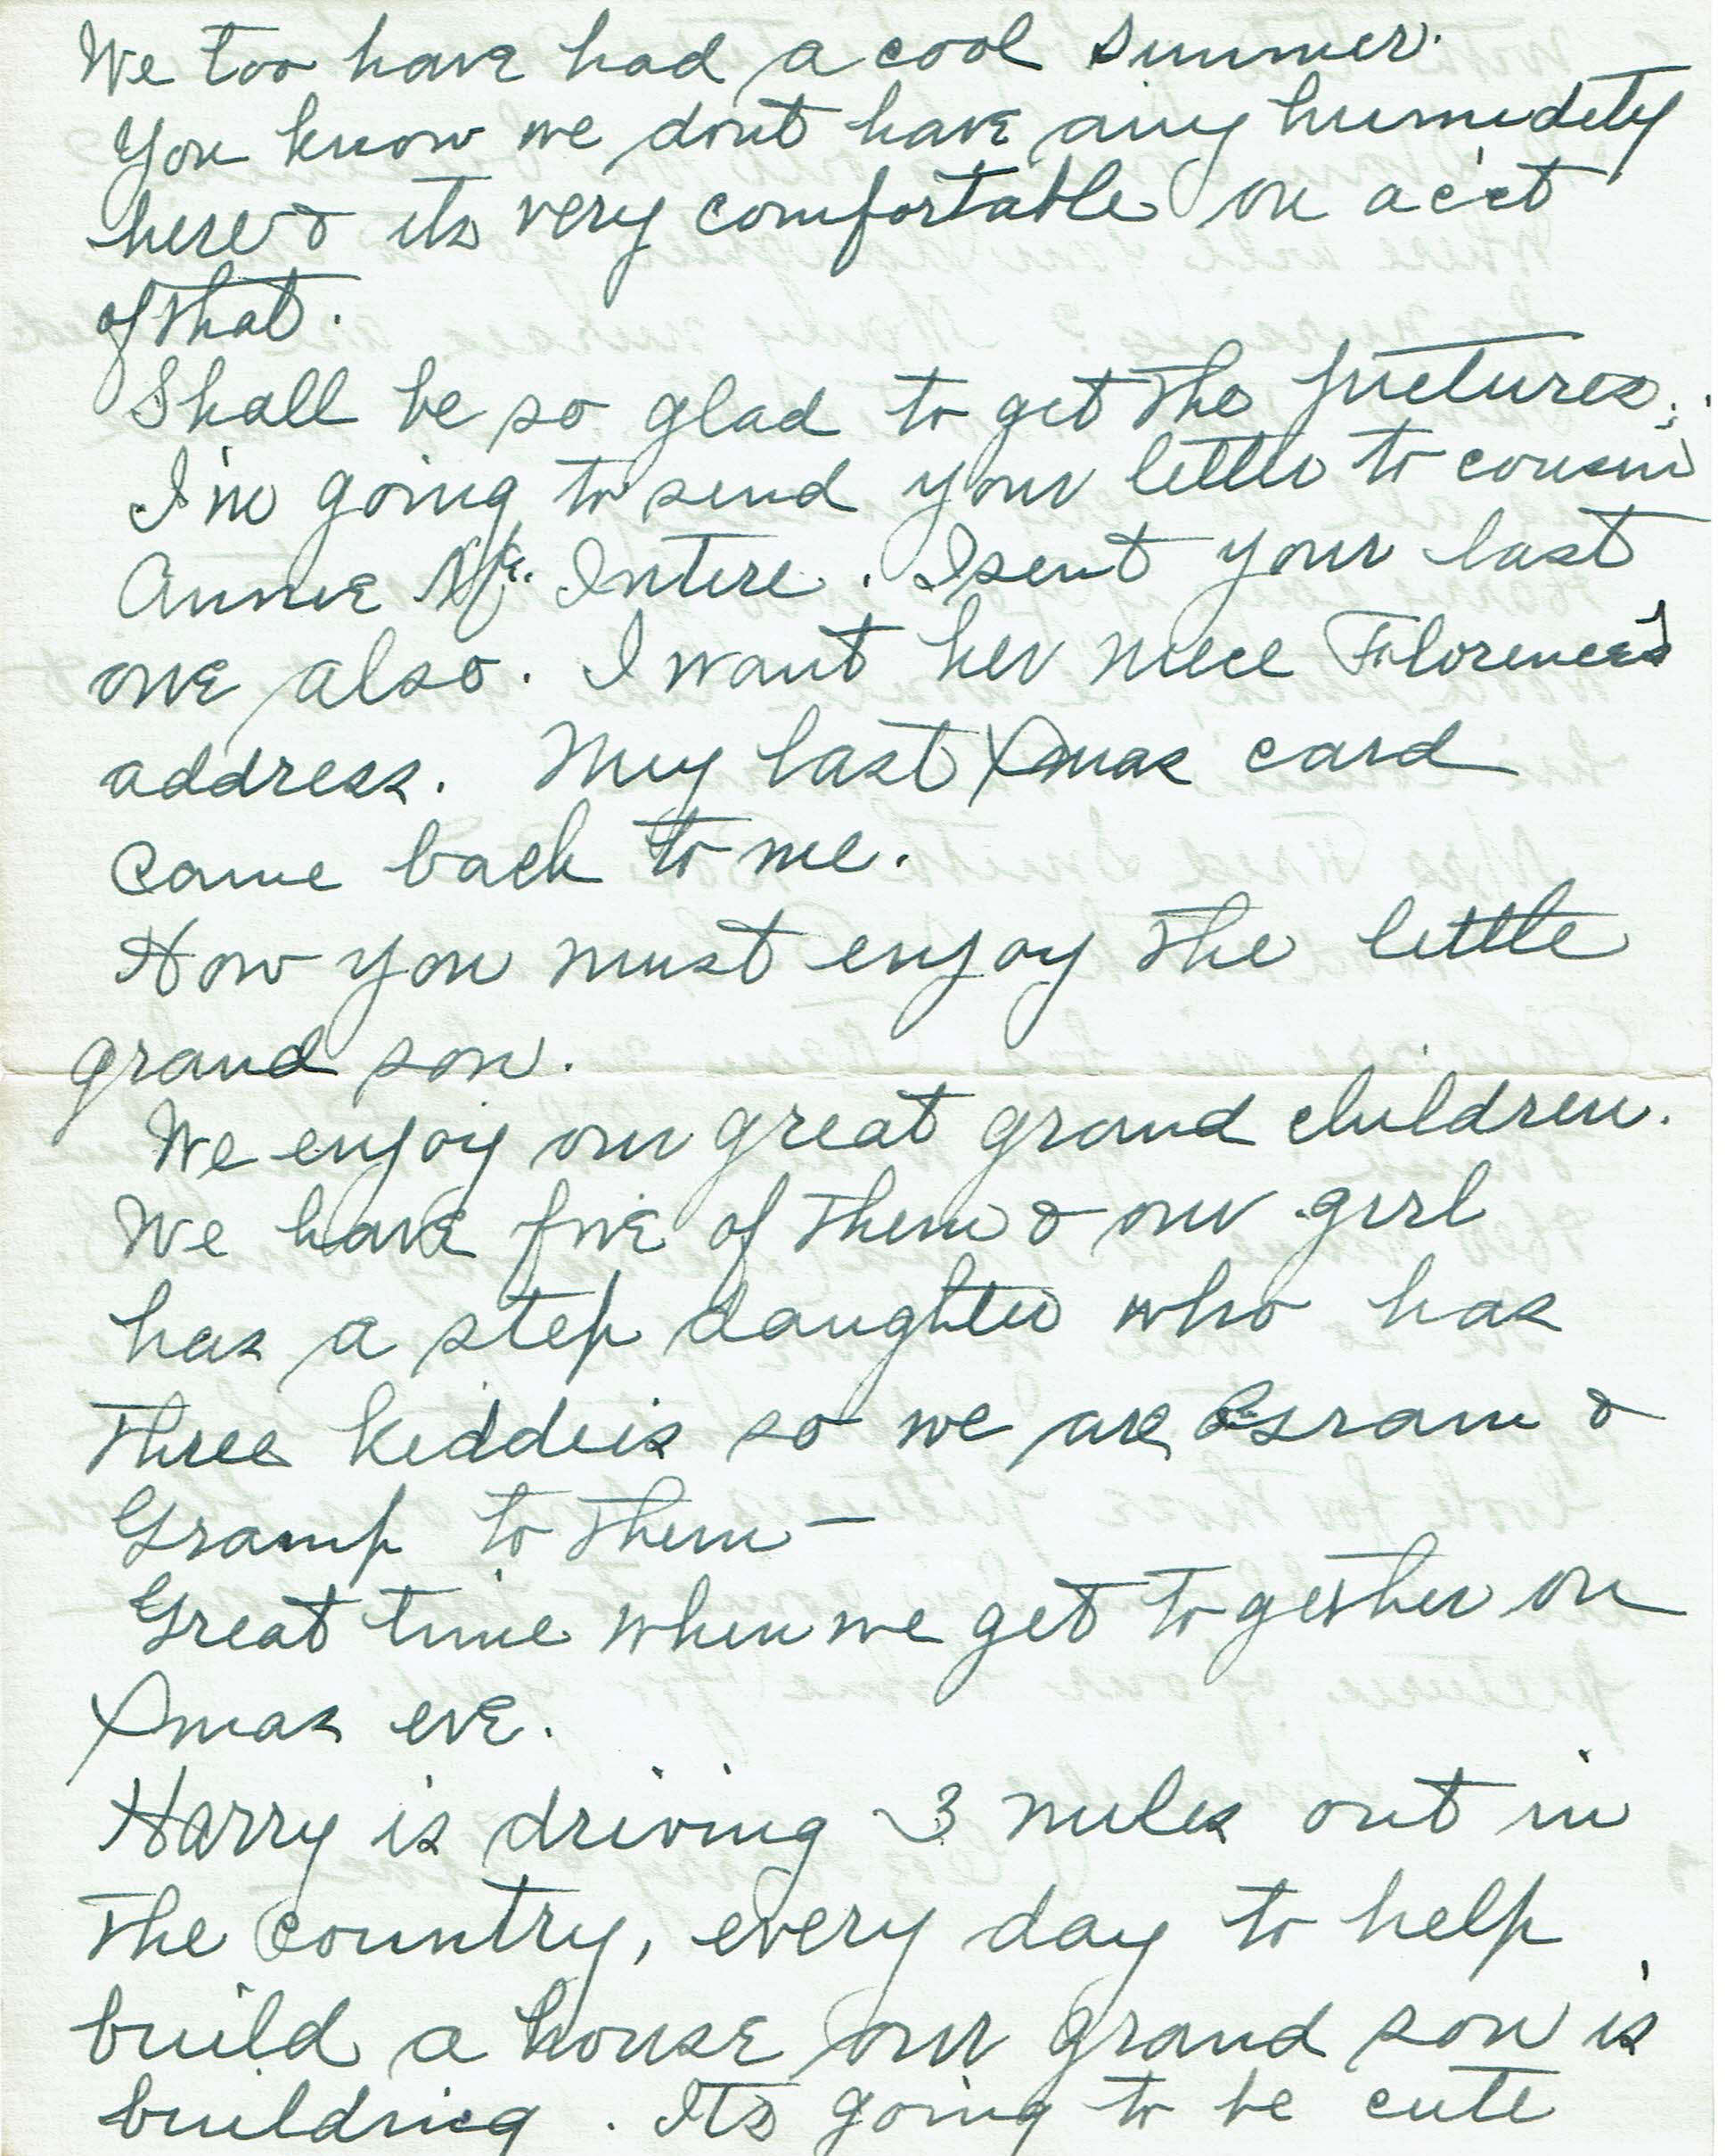 We too have had a cool summer.
You know we dont have any humidity
here & its very comfortable on acct
of that.
Shall be so glad to get the pictures.
I'm going to send your letter to cousin
Annie Mc. Intire. I sent your last
one also. I want her niece Florence's
address. My last Xmas card
came back to me.
How you must enjoy the little
grand son.
We enjoy our great grand children.
We have five of them & our girl
has a step daughter who has
three kiddies so we are Gram &
Gramp to them —
Great time when we get together on
Xmas eve.
Harry is driving 3 miles out in
the country, every day to help
build a house our grand son is
building. Its going to be cute